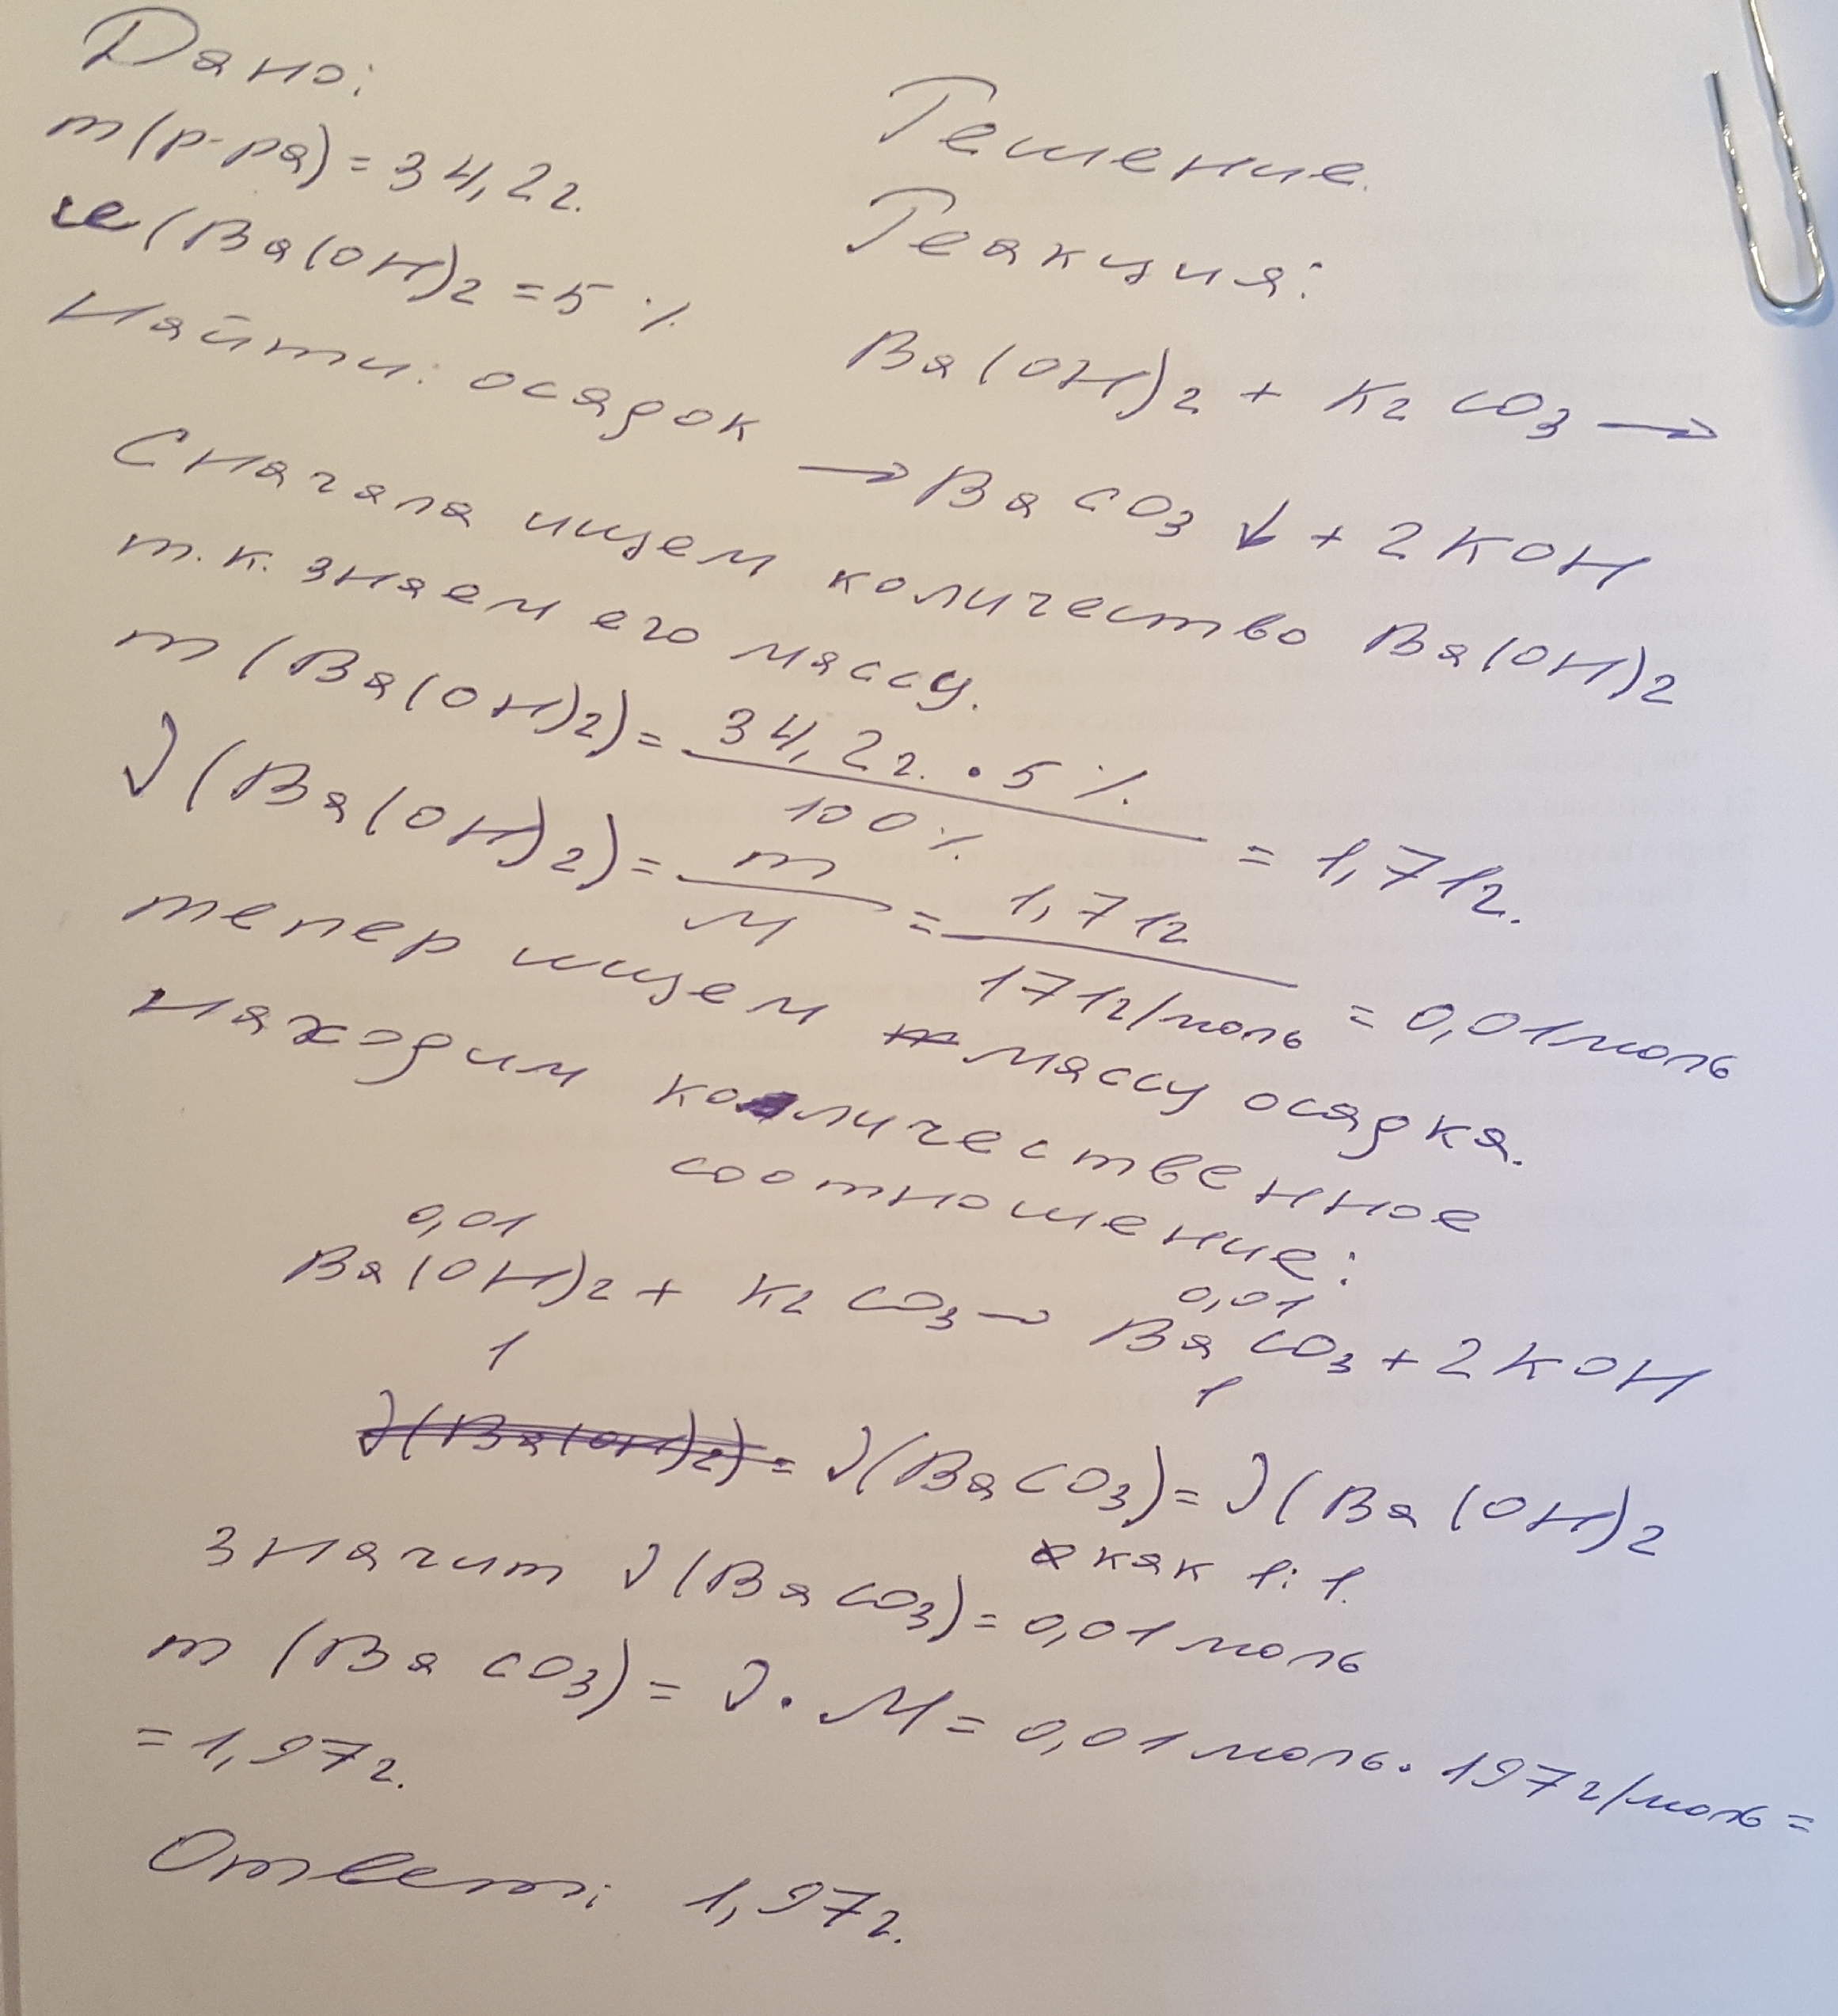 Дано:
m(р-ра) = 34,2г.
ω(Ba(OH)2 = 5 %
Найти: осадок
Решение.
Реакция:
Ba(OH)2 + K2CO3 →
→ BaCO3 ↓ + 2KOH
Сначала ищем количество Ba(OH)2
т.к. знаем его массу.
m(Ba(OH)2) = 34,2г. · 5 % / 100 % = 1,71г.
ν(Ba(OH)2) = m / M = 1,71г / 171г/моль = 0,01моль
тепер ищем массу осадка.
находим количественное
соотношение:
0,01 0,01
Ba(OH)2 + K2CO3 → BaCO3 + 2KOH
1 1
ν(Ba(OH)2) = ν(BaCO3) = ν(Ba(OH)2
как 1:1.
значит ν(BaCO3) = 0,01моль
m(BaCO3) = ν · M = 0,01моль · 197г/моль =
= 1,97г.
Ответ: 1,97г.